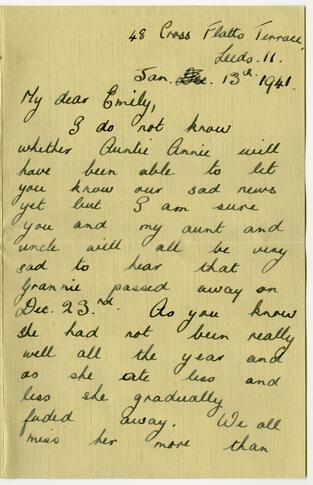 48 Cross Flatts Terrace,
Leeds. 11.
Jan. Dec. 13th 1941.
My dear Emily,
I do not know
whether Auntie Annie will
have been able to let
you know our sad news
yet but I am sure
you and my aunt and
uncle will all be very
sad to hear that
Grannie passed away on
Dec. 23rd. As you know
she had not been really
well all the year and
as she ate less and
less she gradually
faded away. We all
miss her more than